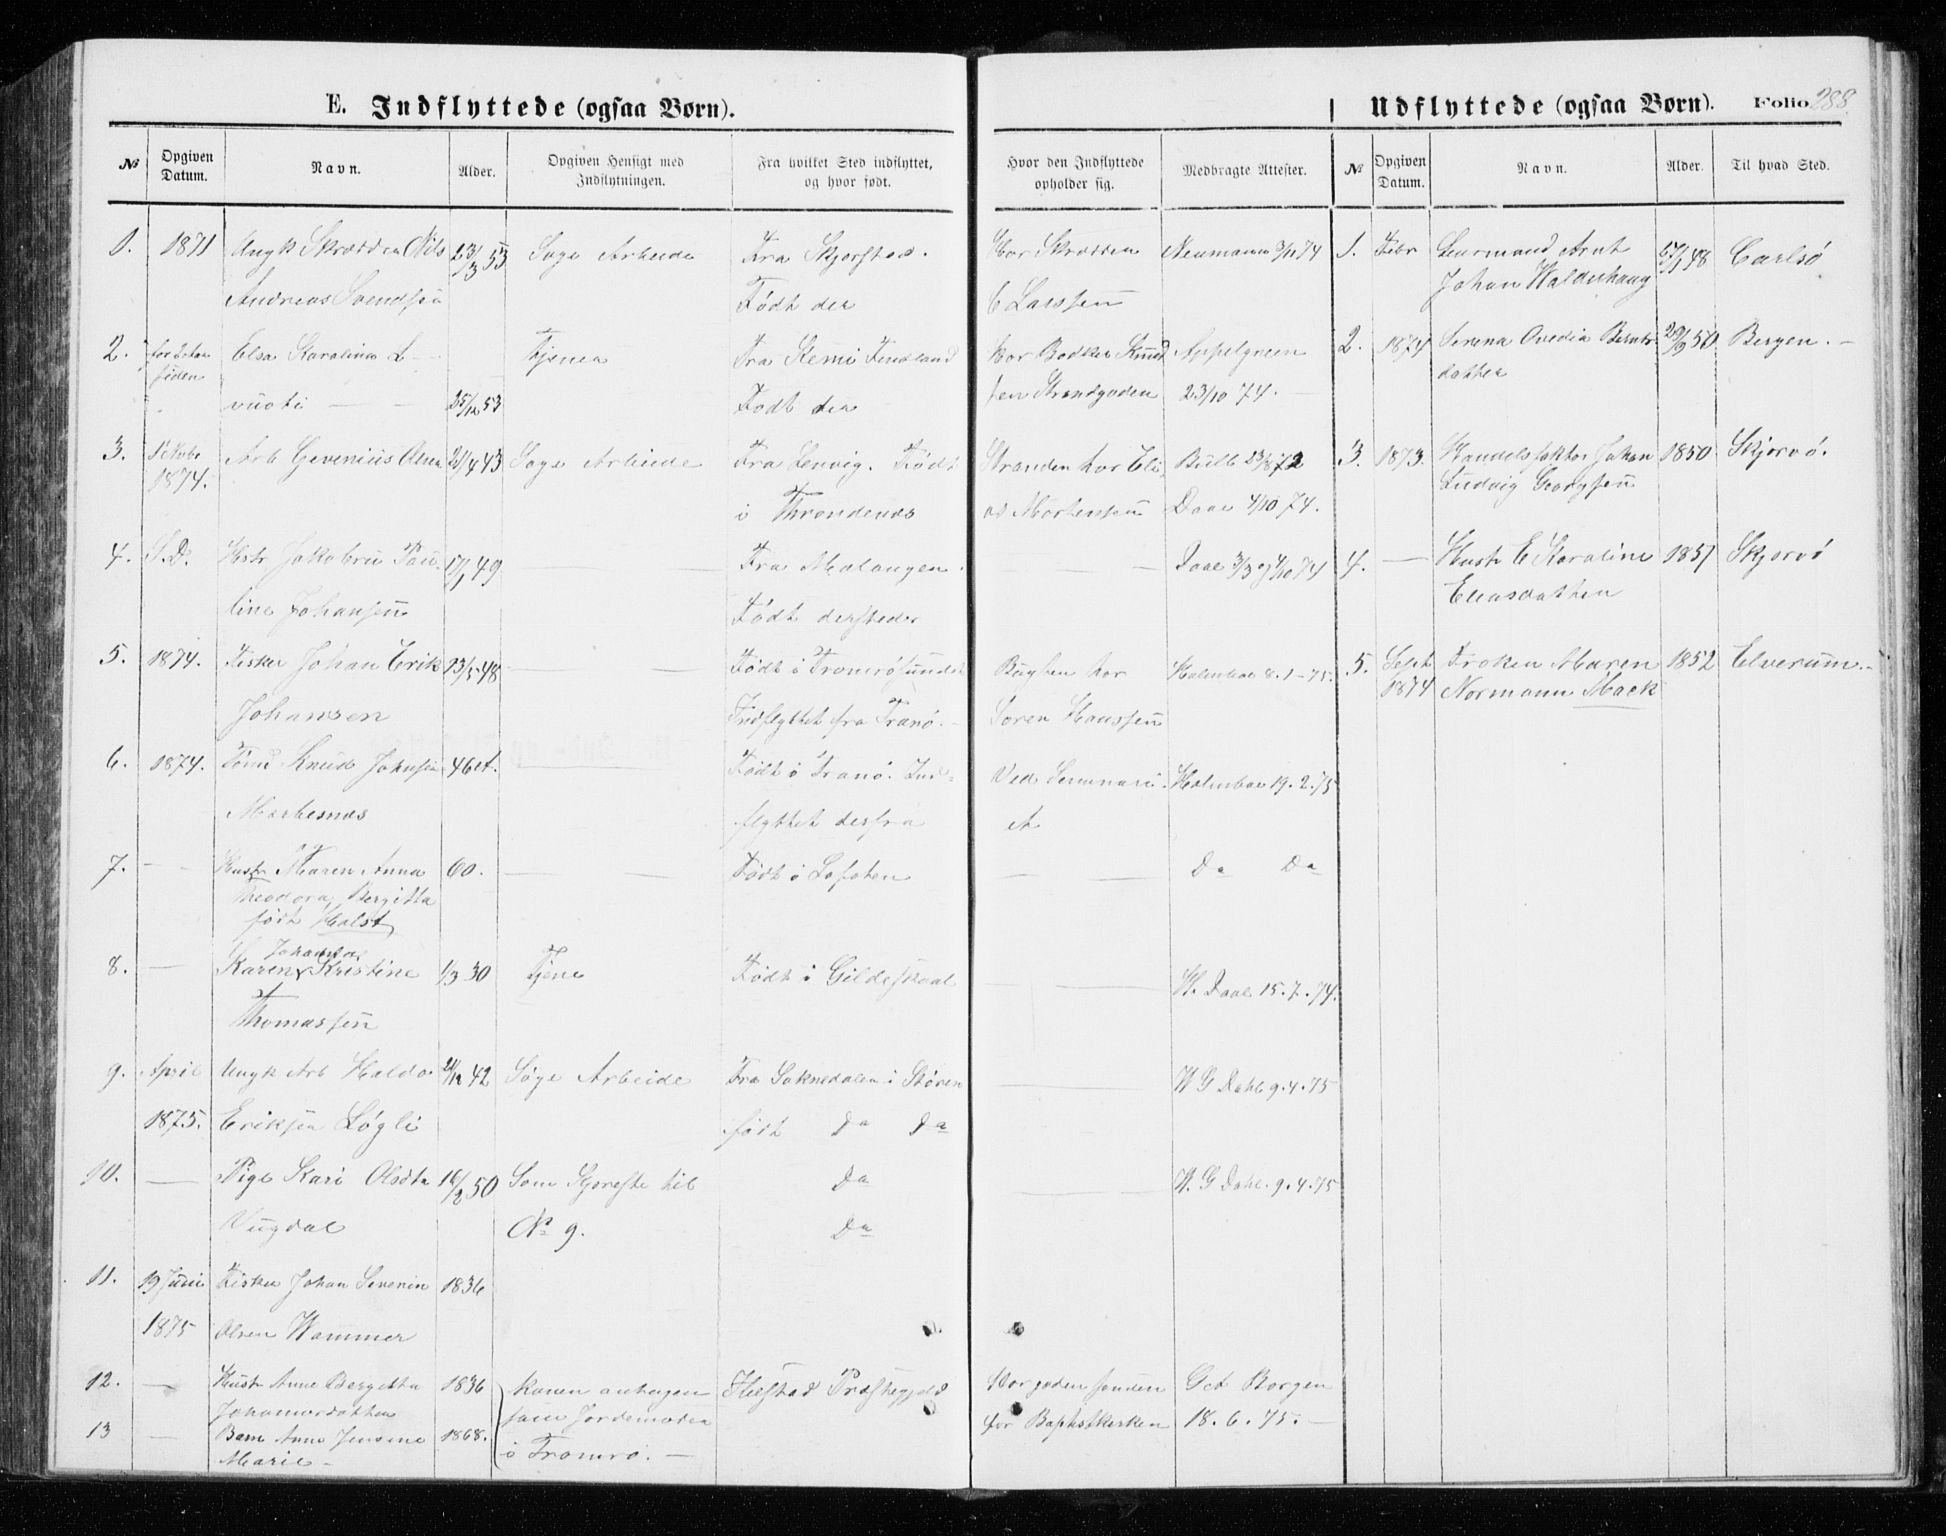 E. Indflyttede (ogsaa Børn).
Udflyttede (ogsaa Børn). Folio 288
№ Opgiven Datum. Navn. Alder. Opgiven Hensigt med Indflytningen. Fra hvilket Sted indflyttet, og hvor født. Hvor den Indflyttede opholder sig. Medbragte Attester. № Opgiven Datum. Navn. Alder. Til hvad Sted.
1. 1871 Ungk Skrædder Nils 23/3 53 Søge Arbeide Fra Skjerstad. Hos Skrædder Neumann 3/11 74
Andreas Svendsen Født der C Larssen
2. for 2 Aar siden Elsa Karolina L Tjene Fra Kemi Findland Hos Bødker Knud Appelgreen
vuoti 25/12 53 Født der sen Strandgaden 23/10 74.
3. Oktobr 1874. Arb Gevenius Olsen 43 Søge Arbeide Fra Lenvig. Født Stranden hos Eli Bull 23/8 72
i Throndenæs as Mortensen Daae 4/10 74.
4. S. D. Hstr Jakobine Pau 17/1 49 Fra Malangen. Daae 3/3 og 4/10 74
line Johansen Født dersteds
5. 1874. Fisker Johan Erik 23/5 48 Født i Tromsøsundet Bugten hos Holmboe 8.1-75.
Johansen Indflyttet fra Tranø. Søren Hanssen
6. 1874. Knud Johnsen 46 Født i Tranø. Ind- Ved Seminari Holmboe 19.2.75
flyttet derfra et
7. Hustr Maren Anna 60. Født i Lofoten Do Do
Theodora Bergitta
født Holst
Johanna
8. Karen Kristine 1/3 30 Tjene Født i Gildeskaal H. Daae 15.7.74.
Thomassen
9. April Ungk Arb Haldo 42 Søge Arbeide Fra Soknedalen i Støren W G Dahl 9.4.75
1875. Eriksen Løgli født Do Do
10. Pige Kari Olsdtr 16/2 50 Som Kjæreste til Do W. G Dahl. 9.4.75
Vugdal № 9. Do
11. 19 Juni Fisker Johan Severin 1836
1875 Olsen Hammer
12. Hustr Anne Bergitta 1836 Konen antagen Præstegjeld Get Borgen
Johannesdatter som Jordemoder for Baptistkirken 18.6.75.
13 Barn Anne Jensine 1868. i Tromsø.
Marie
1. Febr Leermand Arnt 48 Carlsø
Johan Walderhaug
2. 1874 Serena Ovedia Bernts 29/9 50 Bergen.
datter
3. 1873. Handelsfaktor Johan 1850 Skjervø.
Ludvig Georgsen
4. Hustr E Karoline 1851 Skjervø
Eleasdatter
5. Sept Frøken Maren 1852 Elverum.
1874 Normann Mack